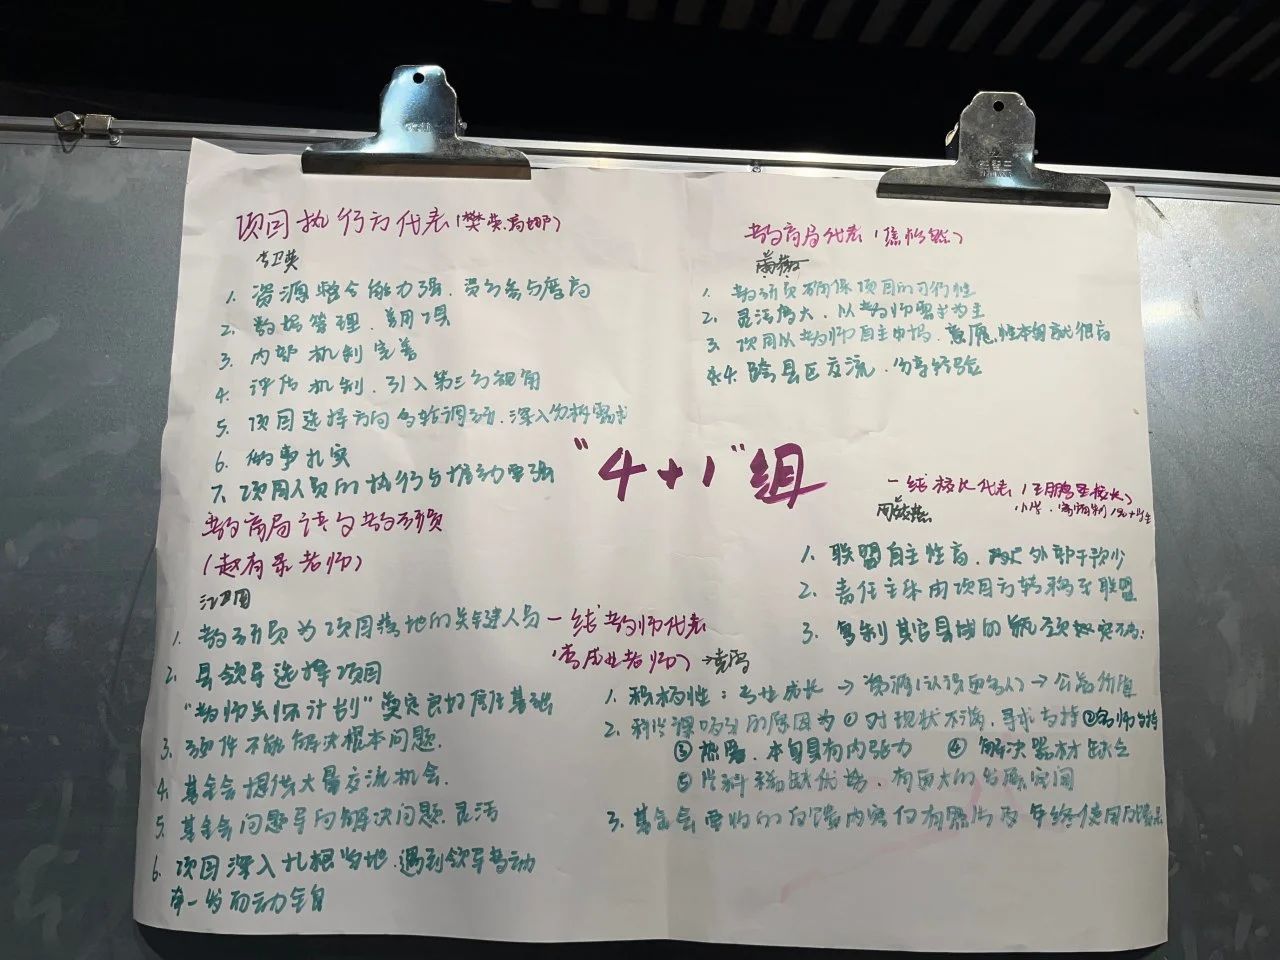 项目执行方代表(樊英.高娜)
李卫英
1. 资源整合能力强.资方参与度高
2. 数据管理.善用工具
3. 内部机制完善
4. 评估机制.引入第三方视角
5. 项目选择方向
深入分析需求
6. 做事扎实
7. 项目人员的执行与推动要强
教育局语文教研员
(赵有录老师)
江卫国
1. 教研员为项目落地的关键人员
2. 县领导选择项目
"教师关怀计划"奠定良好信任基础
3. 硬件不能解决根本问题.
4. 基金会提供大量交流机会.
5. 基金会问题导向解决问题.灵活
6. 项目深入扎根当地.遇到领导变动
牵一发而动全身
"4+1"组
教育局代表(焦)
1. 教研员确保项目的可行性
2. 灵活度大,以教师需求为主
3. 项目以教师自主申报,意愿性本身就很高
4. 跨县区交流.分享经验
一线校长代表(王鹏圣校长)
小学.
1. 联盟自主性高,外部干预少
2. 责任主体由项目方转移至联盟
3. 复制其它县域的
一线教师代表
(高成业老师)
1. 积极性:专业成长→资源(认识的人)→公益价值
2. 科学课吸引的原因为①对现状不满,寻求支持②名师支持
③ 本身具有内驱力 ④ 解决器材缺乏
⑤学科稀缺优势,有更大的发展空间
3. 基金会要收的反馈内容仅有照片及年终使用反馈